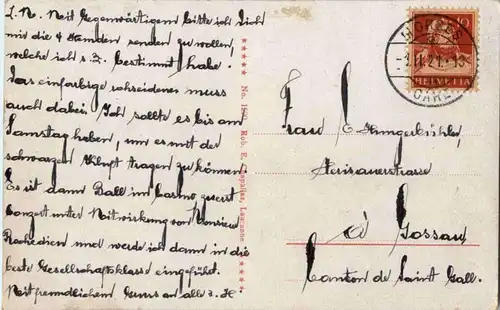 L. M. Mit Gegenwärtigem bitte ich Dich
mir die 4 Hemden senden zu wollen,
welche ich s. Z. bestimmt habe.
Das einfarbige seidenes muss
auch dabei. Ich sollte es bis am
Samstag haben, um es mit der
schwarzen Kluft tragen zu können.
Es ist dann Ball im Casino zuerst
Conzert unter Mitwirkung von
und werde ich dann in die
beste Gesellschaftsklasse eingeführt.
Mit freundlichem Gruss an alle
No. 1800 Rob. E. Chapallaz, Lausanne
10
HELVETIA
GARE
Frau E. Hungerbühler,
Herisauerstrasse
à Gossau
Canton de Saint Gall.